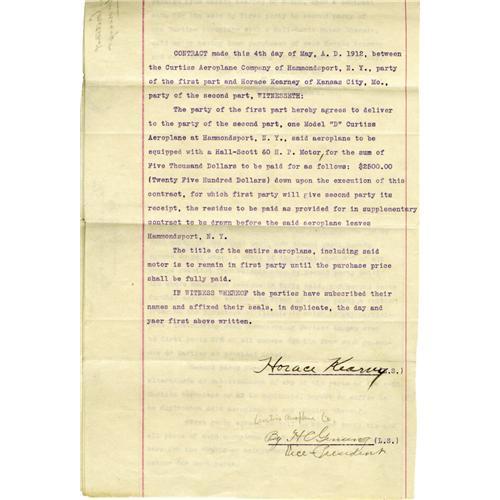 CONTRACT made this 4th day of May, A. D. 1912, between
the Curtiss Aeroplane Company of Hammondsport, N. Y., party
of the first part and Horace Kearney of Kansas City, Mo.,
party of the second part, WITNESSETH:
The party of the first part hereby agrees to deliver
to the party of the second part, one Model "D" Curtiss
Aeroplane at Hammondsport, N. Y., said aeroplane to be
equipped with a Hall-Scott 60 H. P. Motor, for the sum of
Five Thousand Dollars to be paid for as follows: $2500.00
(Twenty Five Hundred Dollars) down upon the execution of this
contract, for which first party will give second party its
receipt, the residue to be paid as provided for in supplementary
contract to be drawn before the said aeroplane leaves
Hammondsport, N. Y.
The title of the entire aeroplane, including said
motor is to remain in first party until the purchase price
shall be fully paid.
IN WITNESS WHEREOF the parties have subscribed their
names and affixed their seals, in duplicate, the day and
yaer first above written.
Horace Kearny (L.S.)
Curtiss Aeroplane Co
By H C Genung (L.S.)
Vice-President